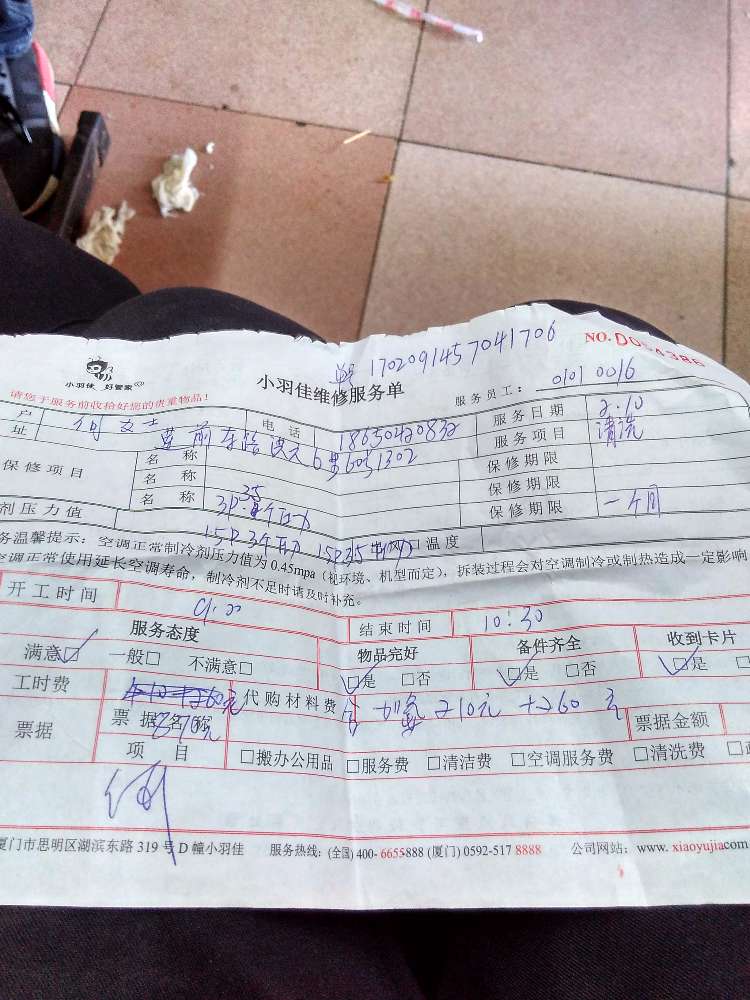 1702091457041706
NO.D054386
小羽佳 好管家
小羽佳维修服务单
服务员工: 01010016
请您于服务前收拾好您的贵重物品!
户 何女士 电话 18650420832 服务日期 2.10
址 6 1302 服务项目 清洗
保修项目 名称 保修期限
名称 保修期限
名称 保修期限 一个月
剂压力值 温度
务温馨提示: 空调正常制冷剂压力值为 0.45mpa (视环境、机型而定), 拆装过程会对空调制冷或制热造成一定影响
空调正常使用延长空调寿命, 制冷剂不足时请及时补充。
开工时间 结束时间 10:30
服务态度 物品完好 备件齐全 收到卡片
满意□ 一般□ 不满意□ □是 □否 □是 □否 □是
工时费 代购材料费 加氟210元 +260元
票据 票据名称 870元 票据金额
项目 □搬办公用品 □服务费 □清洁费 □空调服务费 □清洗费
何
厦门市思明区湖滨东路 319 号 D 幢小羽佳 服务热线: (全国) 400-6655888 (厦门) 0592-517 8888 公司网站: www.xiaoyujia.com